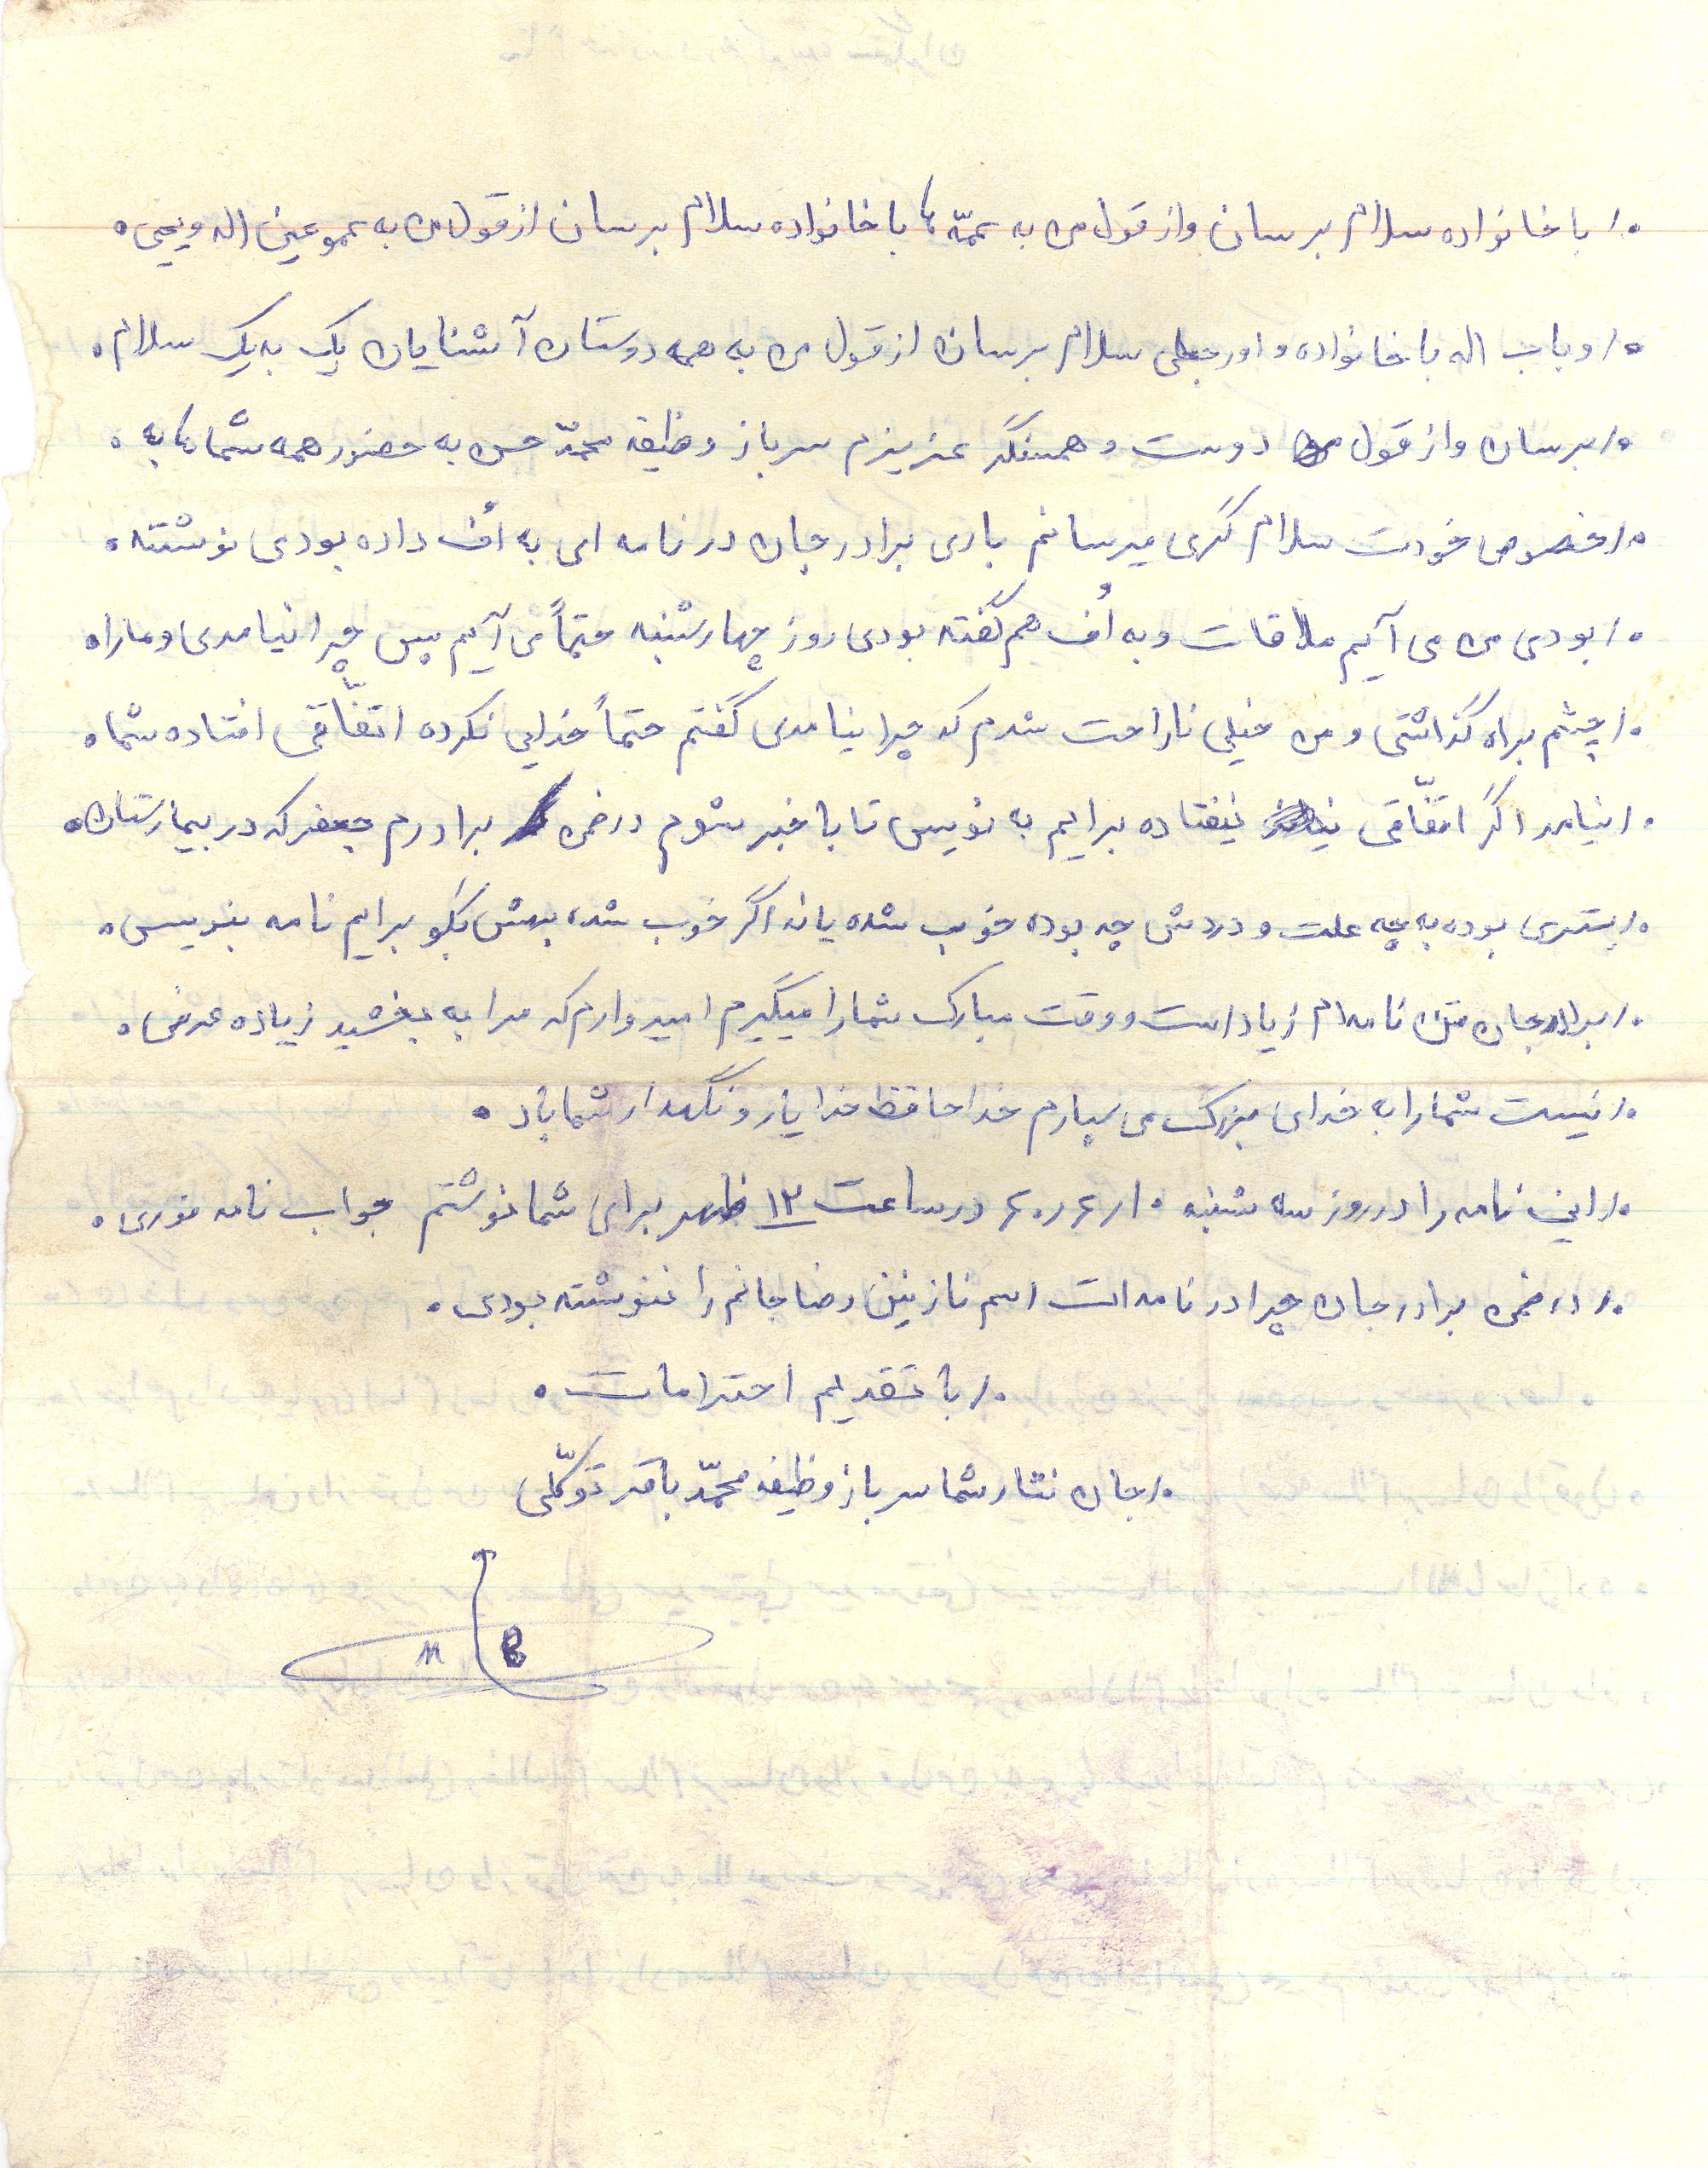 ۰/ با خانواده سلام برسان و از قول من به عمّه ها با خانواده سلام برسان از قول من به عمو عین اله و یحیی ۰
۰/ و باب اله با خانواده و اورجعلی سلام برسان از قول من به همه دوستان آشنایان یک به یک سلام ۰
۰/ برسان و از قول من دوست و همسنگر عزیزم سرباز وظیفه محمّد حسن به حضور همه شماها به ۰
۰/ خصوص خودت سلام گرمی میرسانم باری برادر جان در نامه ای به اُف داده بودی نوشته ۰
۰/ بودی من می آیم ملاقات و به اُف هم گفته بودی روز چهارشنبه حتماً می آیم پس چرا نیامدی و ما را ۰
۰/ چشم براه گذاشتی و من خیلی ناراحت شدم که چرا نیامدی گفتم حتماً خدایی نکرده اتّفاقی افتاده شما ۰
۰/ نیامد اگر اتفّاقی نیفتاده برایم به نویس تا با خبر شوم در ضمن برادرم جعفر که در بیمارستان ۰
۰/ بستری بوده به چه علت و دردش چه بوده خوب شده یا نه اگر خوب شده بهش بگو برایم نامه بنویس ۰
۰/ برادر جان متن نامه ام زیاد است و وقت مبارک شما را میگیرم امیدوارم که مرا به بخشید زیاده عرض ۰
۰/ نیست شما را به خدای بزرگ می سپارم خداحافظ خدا یار و نگهدار شما باد ۰
۰/ این نامه را در روز سه شنبه ۶۰٫۶٫۱۰ در ساعت ۱۲ ظهر برای شما نوشتم جواب نامه فوری ۰
۰/ در ضمن برادر جان چرا در نامه ات اسم نازنین رضا جانم را ننوشته بودی ۰
۰/ با تقدیم احترامات ۰
۰/ جان نثار شما سرباز وظیفه محمّد باقر توکّلی
M B